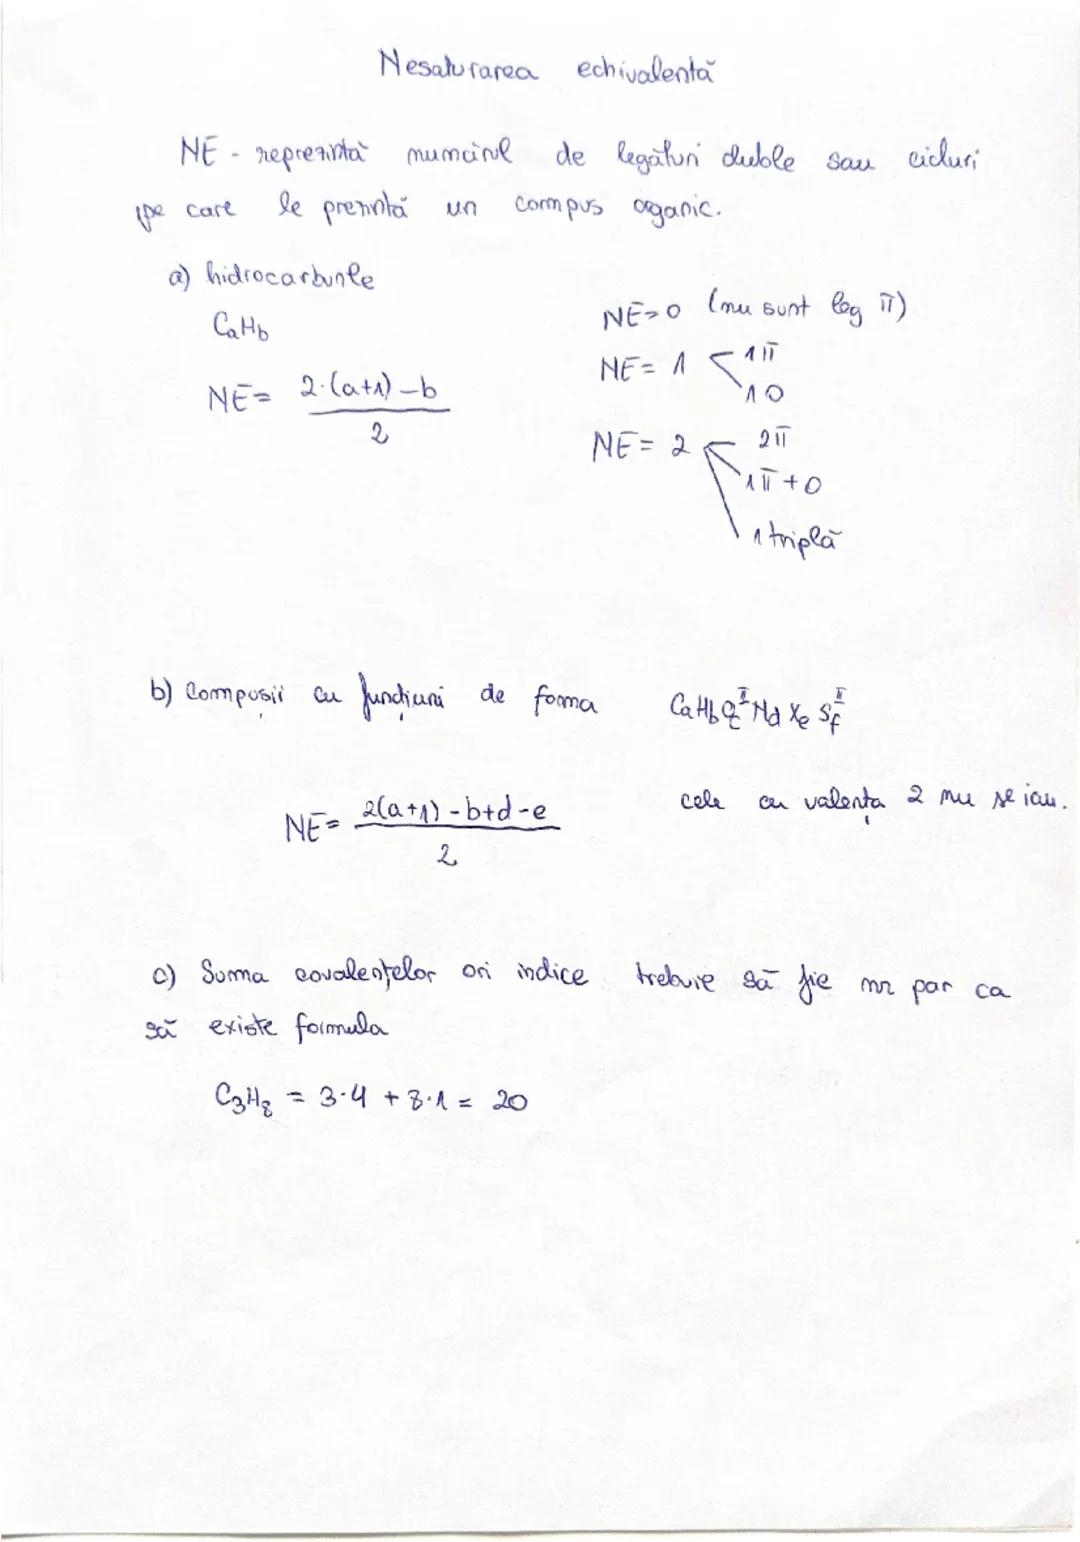 Nesaturarea echivalentă
NE - reprezintă numărul de legături duble sau cicluri
pe care le prezintă un compus organic.
a) hidrocarburile
CaHb
NE = 2·(a+1) - b / 2
NE=0 (nu sunt leg π)
NE = 1 < 1π
1 O
NE = 2 < 2π
1π + O
1 triplă
b) Compusii cu funcțiuni de forma CaHbOc^II Nd Xe Sf^II
NE = 2(a+1) - b+d-e / 2
cele cu valența 2 nu se iau.
c) Suma covalențelor ori indice trebuie să fie nr par ca
să existe formula
C3H8 = 3·4 + 8·1 = 20